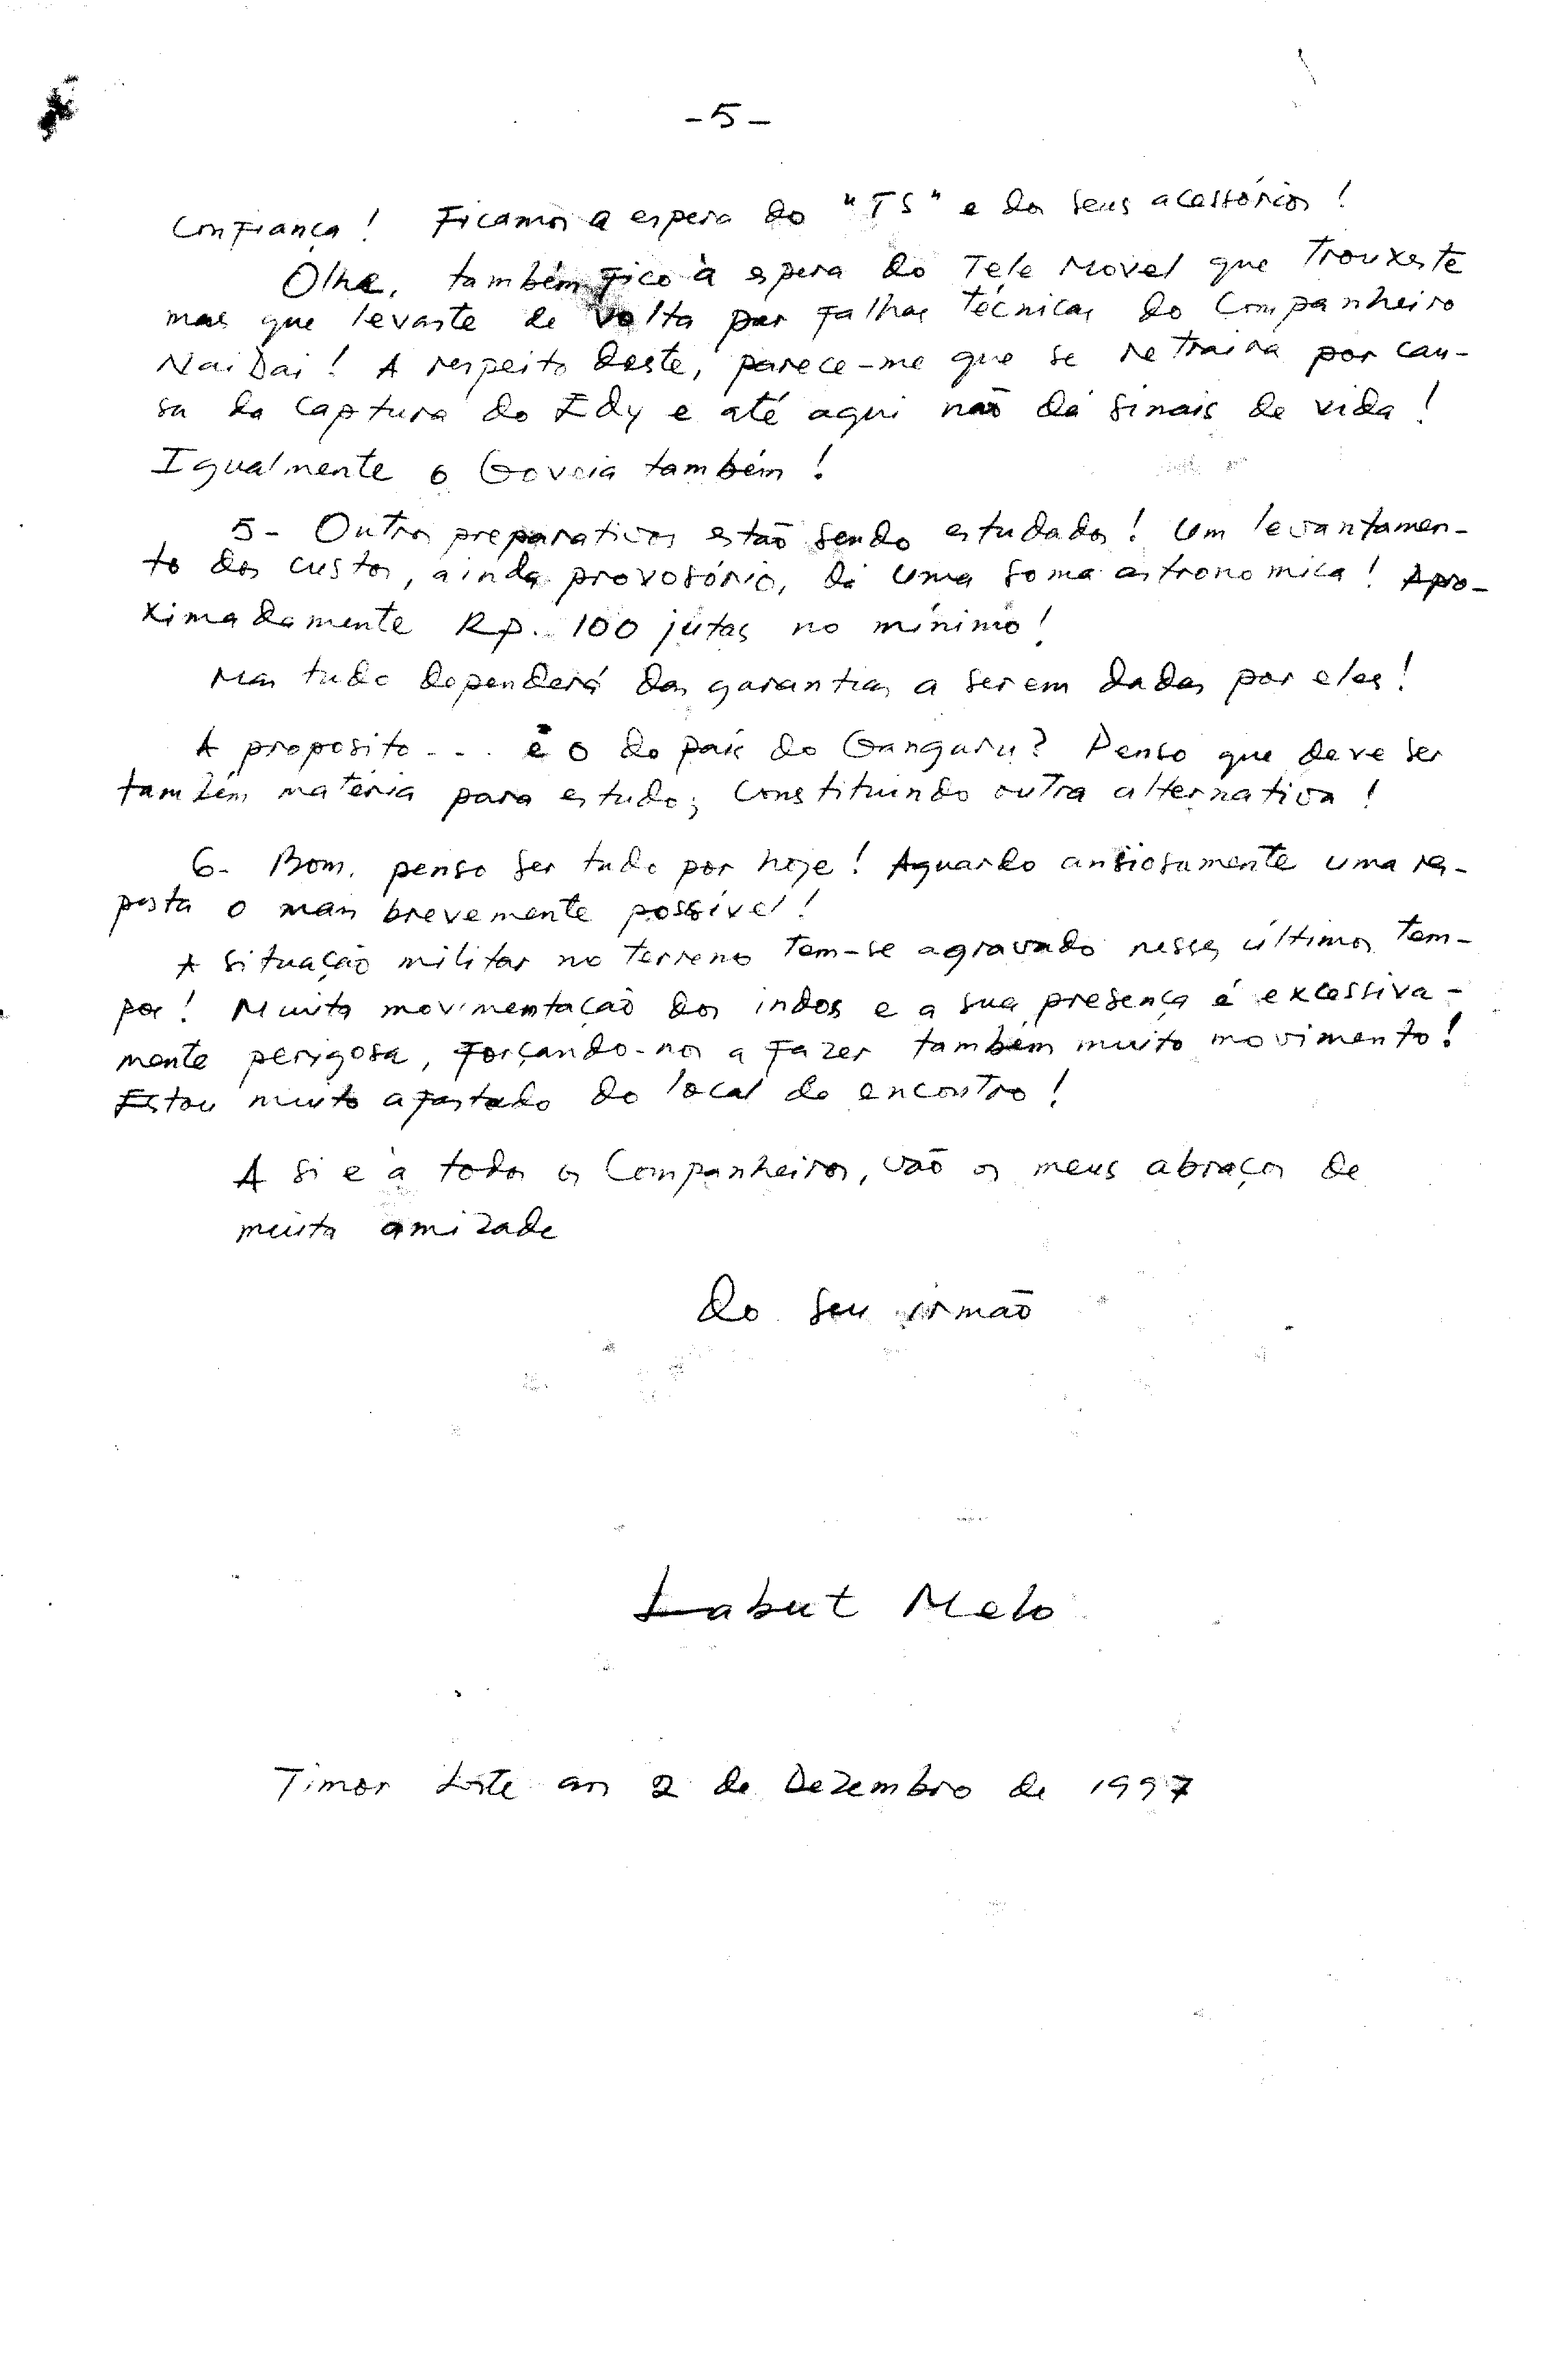 -5-
Confiança! Ficamos a espera do "TS" e dos seus acessórios!
Olhe, também fico à espera do Tele Movel que trouxeste
mas que levaste de volta por falhas técnicas do Companheiro
NaiDai! A respeito deste, parece-me que se retraira por cau-
sa da captura do Edy e até aqui não dá sinais de vida!
Igualmente o Goveia também!
5- Outros preparativos estão sendo estudados! Um levantamen-
to dos custos, ainda provosório, dá uma soma astronomica! Apro-
ximadamente Rp. 100 jutas no mínimo!
Mas tudo dependerá das garantias a serem dadas por eles!
A proposito... é o do país do Ganguru? Penso que deve ser
também matéria para estudo; constituindo outra alternativa!
6- Bom, penso ser tudo por hoje! Aguardo ansiosamente uma res-
posta o mais brevemente possível!
A situação militar no terreno tem-se agravado nesses últimos tem-
pos! Muita movimentação dos indos e a sua presença é excessiva-
mente perigosa, forçando-nos a fazer também muito movimento!
Estou muito afastado do local do encontro!
A si e a todos os Companheiros, vão os meus abraços de
muita amizade
do seu irmão
Labut Melo
Timor Leste aos 2 de Dezembro de 1997